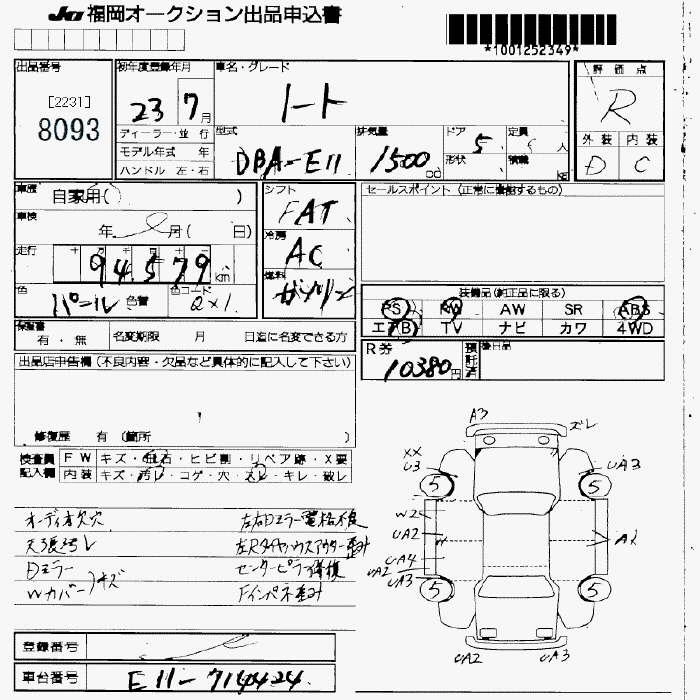 JU 福岡オークション出品申込書
*1001252349*
出品番号
[2231]
8093
初年度登録年月
23 7月
ディーラー・並行
モデル年式 年
ハンドル 左・右
車名・グレード
ノート
型式
DBA-E11
排気量
1500cc
ドア
5
形状
定員
人
積載
kg
評価点
R
外装 内装
D C
車歴
自家用( )
車検
年 月( 日)
走行
94,579km
色
パール 色替
色コード
2×1
シフト
FAT
冷房
AC
燃料
ガソリン
セールスポイント (正常に機能するもの)
装備品(純正品に限る)
PS PW AW SR ABS
エアB TV ナビ カワ 4WD
保証書
有・無
名変期限 月 日迄に名変できる方
R券
10380円
預託済
後日品
出品店申告欄(不良内容・欠品など具体的に記入して下さい)
修復歴 有(箇所 )
検査員記入欄
FW キズ・飛石・ヒビ割・リペア跡・X要
内装 キズ・汚レ・コゲ・穴・スレ・キレ・破レ
オーディオ欠穴
天張汚レ
Dミラー
Wカバー キズ
左右Dミラー電格不良
センターピラー修復
Fインパネ歪み
登録番号
車台番号
E11-714424
A3
ズレ
XX
U3
UA3
5
5
W2
UA2
W
UA4
UA2
UA3
A1
5
5
UA2
UA3